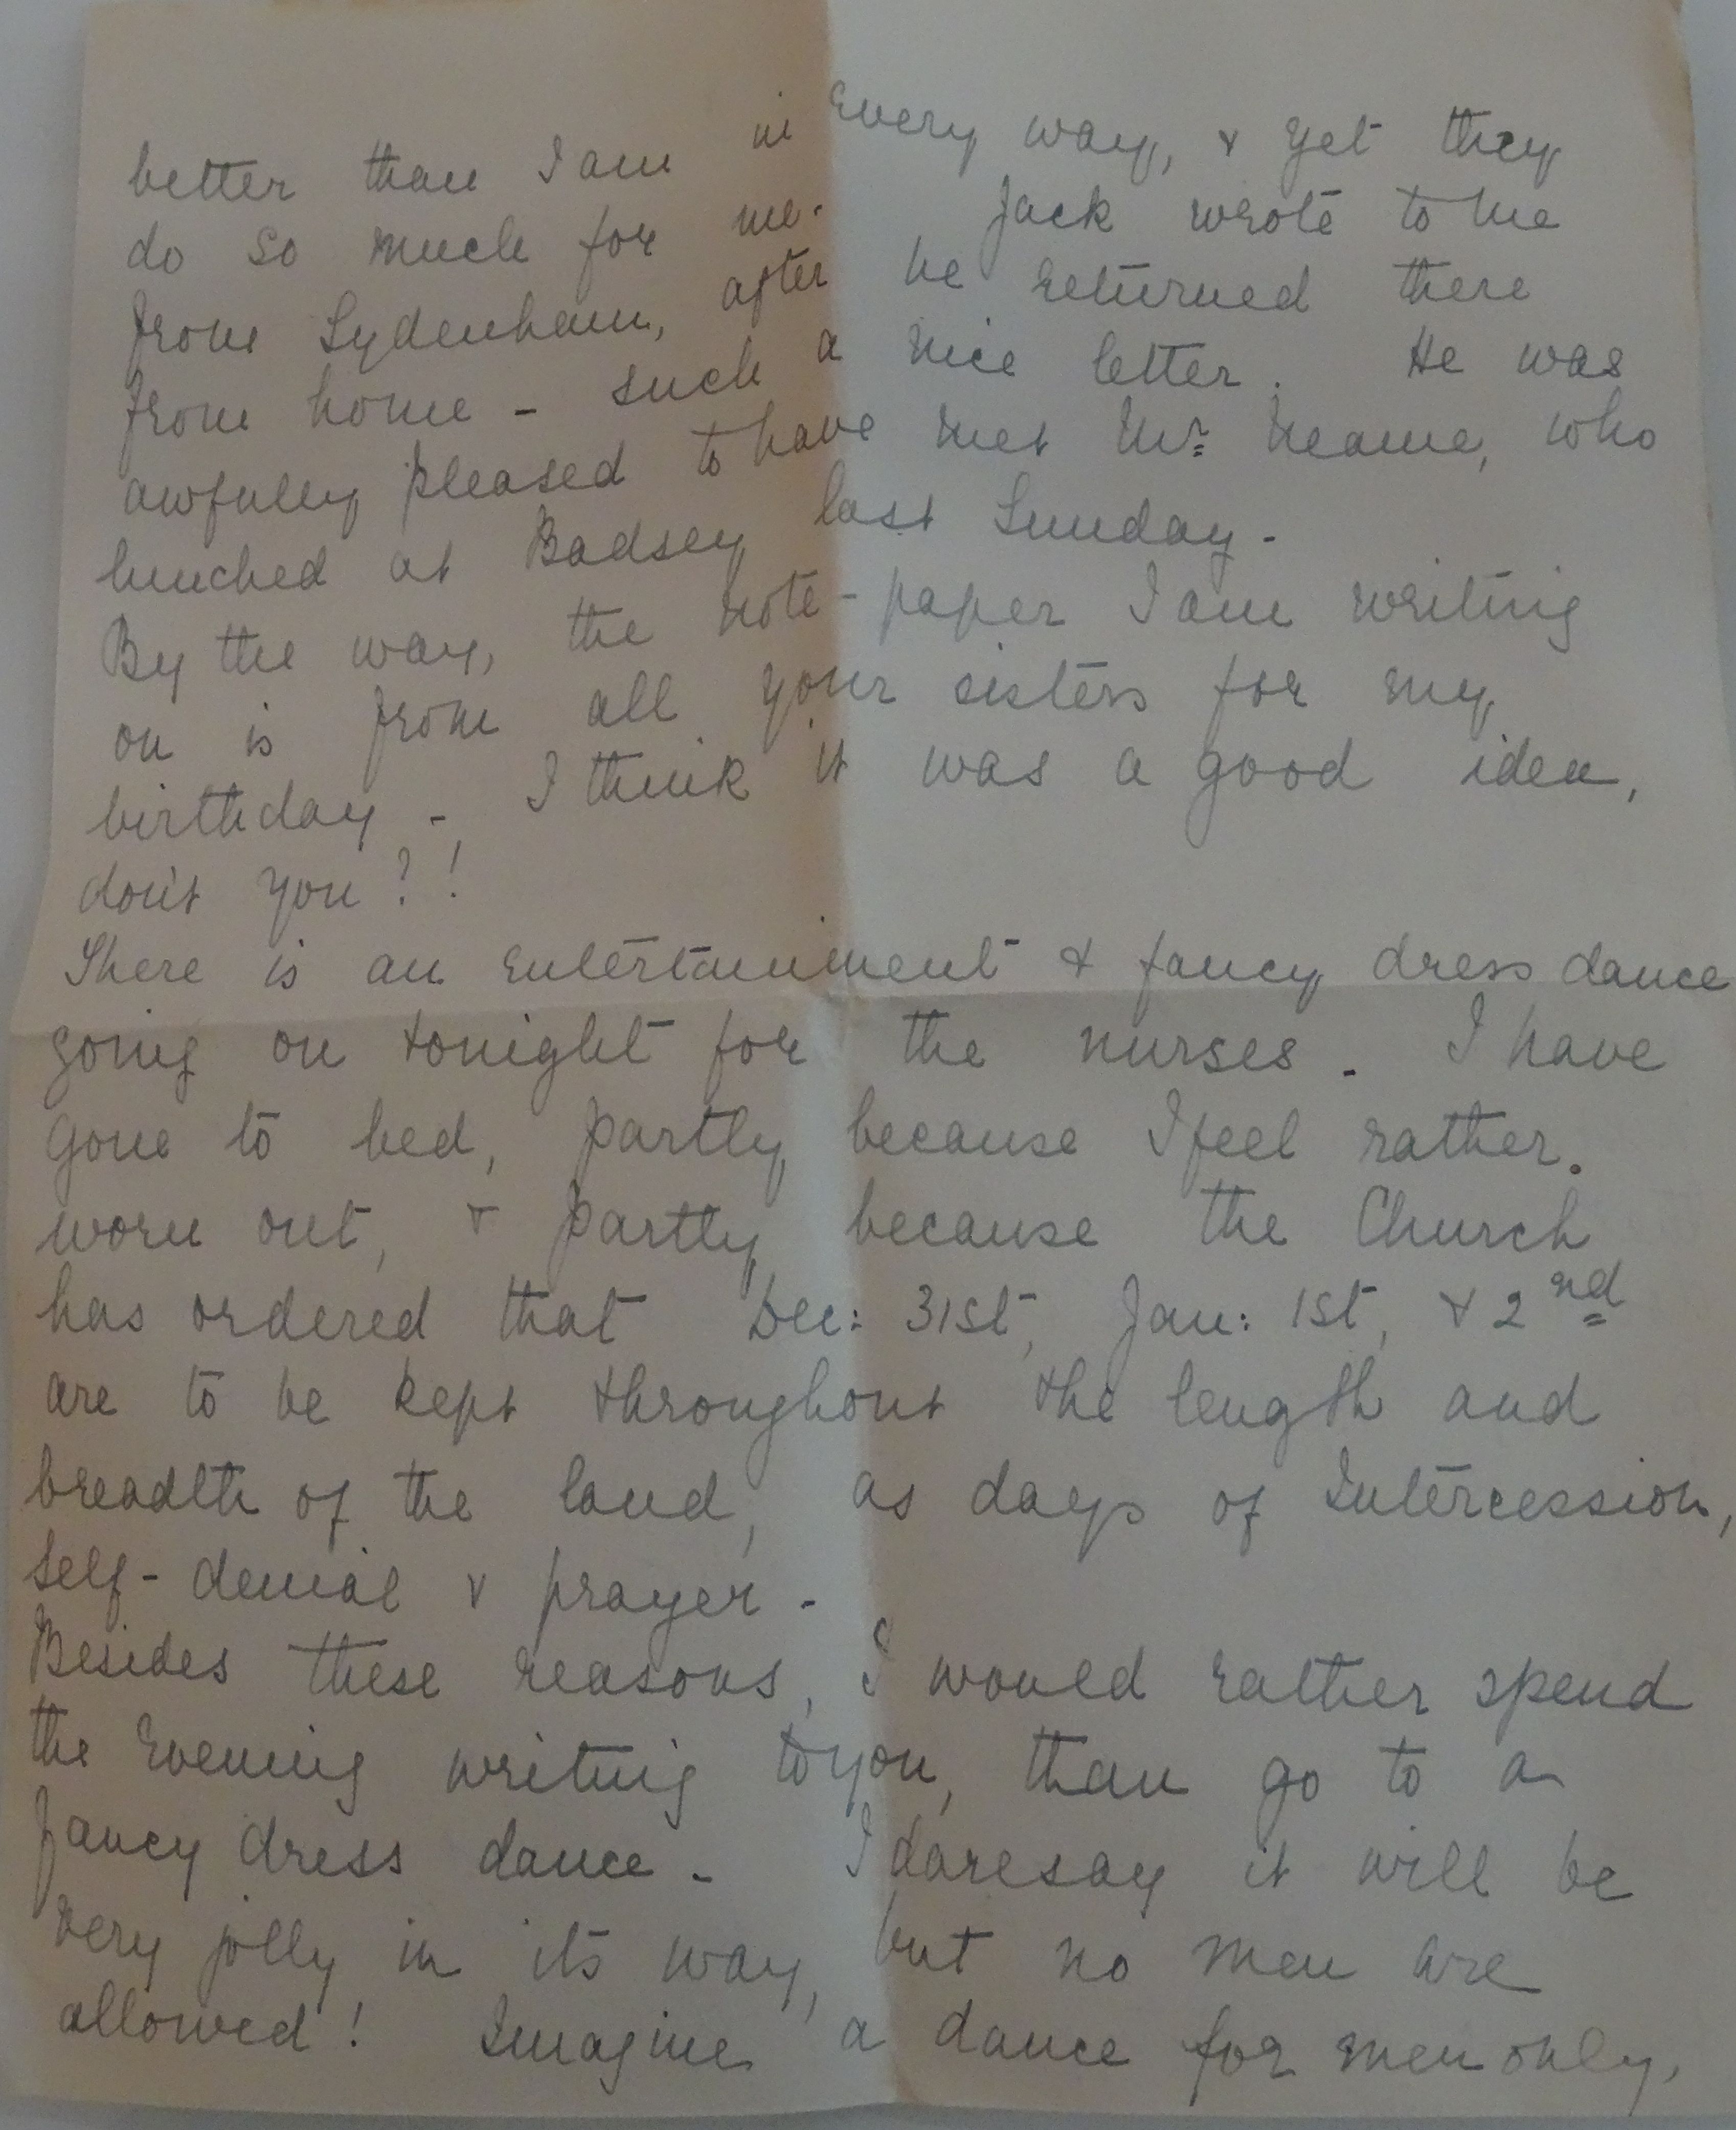 better than I am in every way, & yet they
do so much for me. Jack wrote to me
from Sydenham, after he returned there
from home - such a nice letter. He was
awfully pleased to have met Mr. Neame, who
lunched at Badsey last Sunday -
By the way, the note-paper I am writing
on is from all your sisters for my
birthday - I think it was a good idea,
don't you?!
There is an entertainment & fancy dress dance
going on tonight for the nurses. I have
gone to bed, partly because I feel rather.
worn out, & partly because the Church
has ordered that Dec: 31st, Jan: 1st, & 2nd
are to be kept throughout the length and
breadth of the land, as days of Intercession,
self-denial & prayer -
Besides these reasons, I would rather spend
the evening writing to you, than go to a
fancy dress dance - I daresay it will be
very jolly in its way, but no men are
allowed! Imagine a dance for men only,